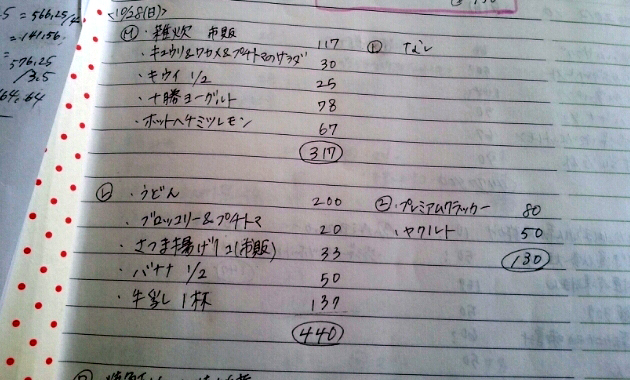 5 = 566.25/4
= 141.56
=
576.25
/3.5
64.64
<19S8(日)>
Ⓜ・雑炊 市販 117
・キュウリ&ワカメ&プチトマのサラダ 30
・キウイ 1/2 25
・十勝ヨーグルト 78
・ホットハチミツレモン 67
317
① なし
Ⓛ ・うどん 200
・ブロッコリー&プチトマ 20
・さつま揚げ1コ(市販) 33
・バナナ 1/2 50
・牛乳 1杯 137
440
②・プレミアムクラッカー 80
・ヤクルト 50
130